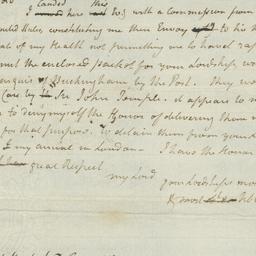 landed this
I moved here and Day with a Commission from
United States, constituting me their Envoy to his m
at of my Health not permitting me to travel rap
mit the enclosed packet for your Lordship w
arquis of Buckingham by the Post. They wo
Care by Sir John Temple. it appears to m
to deny myself the Honor of delivering them
for that purpose, to detain them from your
my arrival in London. I have the Honor
great Respect
my Lord
your Lordships mos
& most